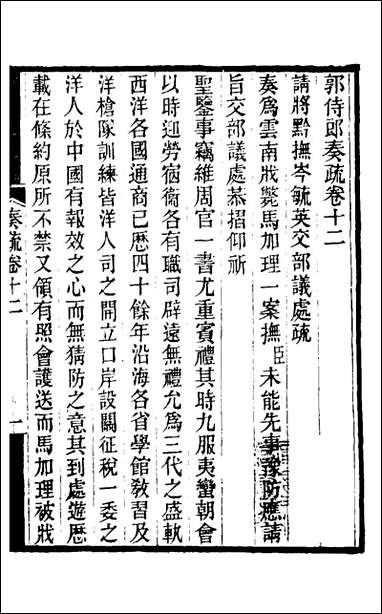 郭侍郎奏疏卷十二
請將黔撫岑毓英交部議處疏
奏爲雲南戕斃馬加理一案撫臣未能先事豫防應請
旨交部議處恭摺仰祈
聖鑒事竊維周官一書尤重賓禮其時九服夷蠻朝會
以時迎勞宿衞各有職司辟遠無禮允爲三代之盛軌
西洋各國通商已歷四十餘年沿海各省學館敎習及
洋槍隊訓練皆洋人司之開立口岸設關征稅一委之
洋人於中國有報效之心而無猜防之意其到處遊歷
載在條約原所不禁又領有照會護送而馬加理被戕
奏疏卷十二
一